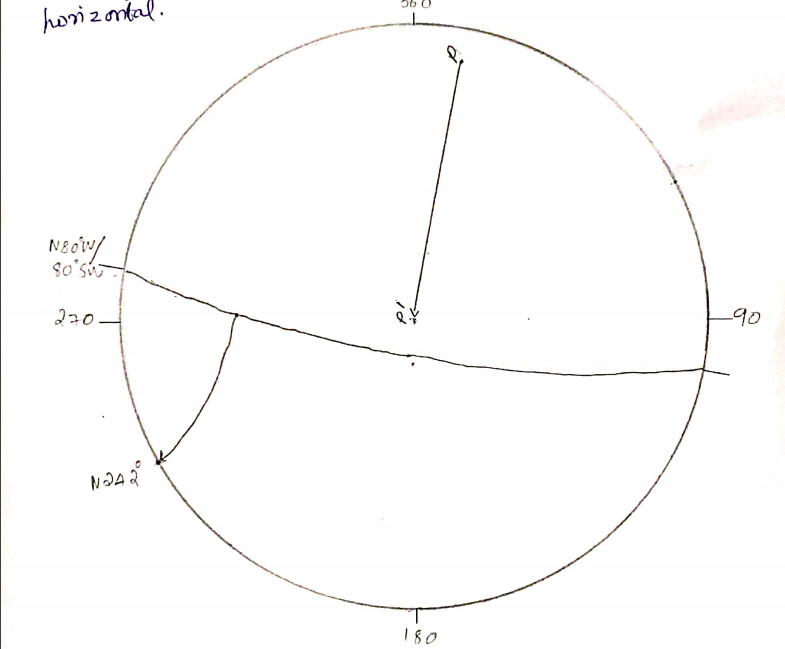 horizontal.
360
P
N80°W/
80°SW
P'
270
90
N242°
180